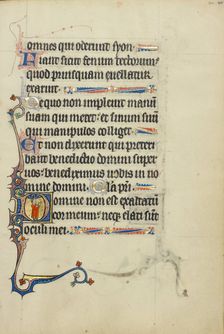 omnes qui oderunt syon.
Fiant sicut fenum tectorum:
quod priusquam evellatur
exaruit.
De quo non implevit manum
suam qui metet: et sinum suum
qui manipulos colliget.
Et non dixerunt qui preteri
bant benedictio domini super
vos: benediximus vobis in no
mine domini.
Domine non est exaltatum
cor meum: neque elati sunt
oculi mei.